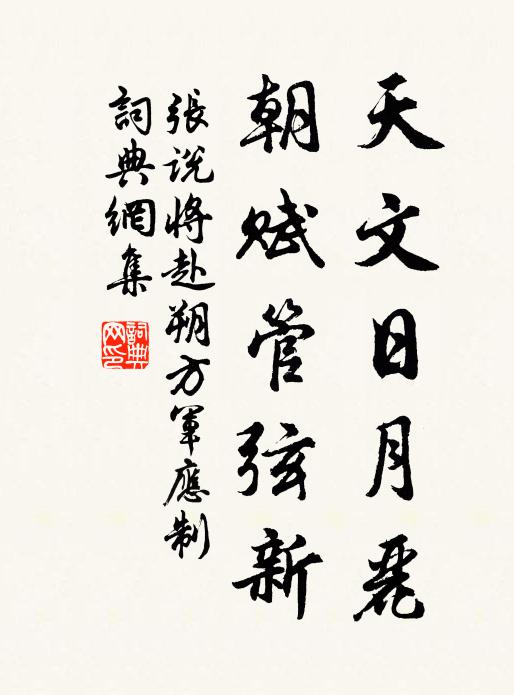 天文日月麗
朝賦管弦新
張説將赴朔方軍應制
詞典網集
詞典網印